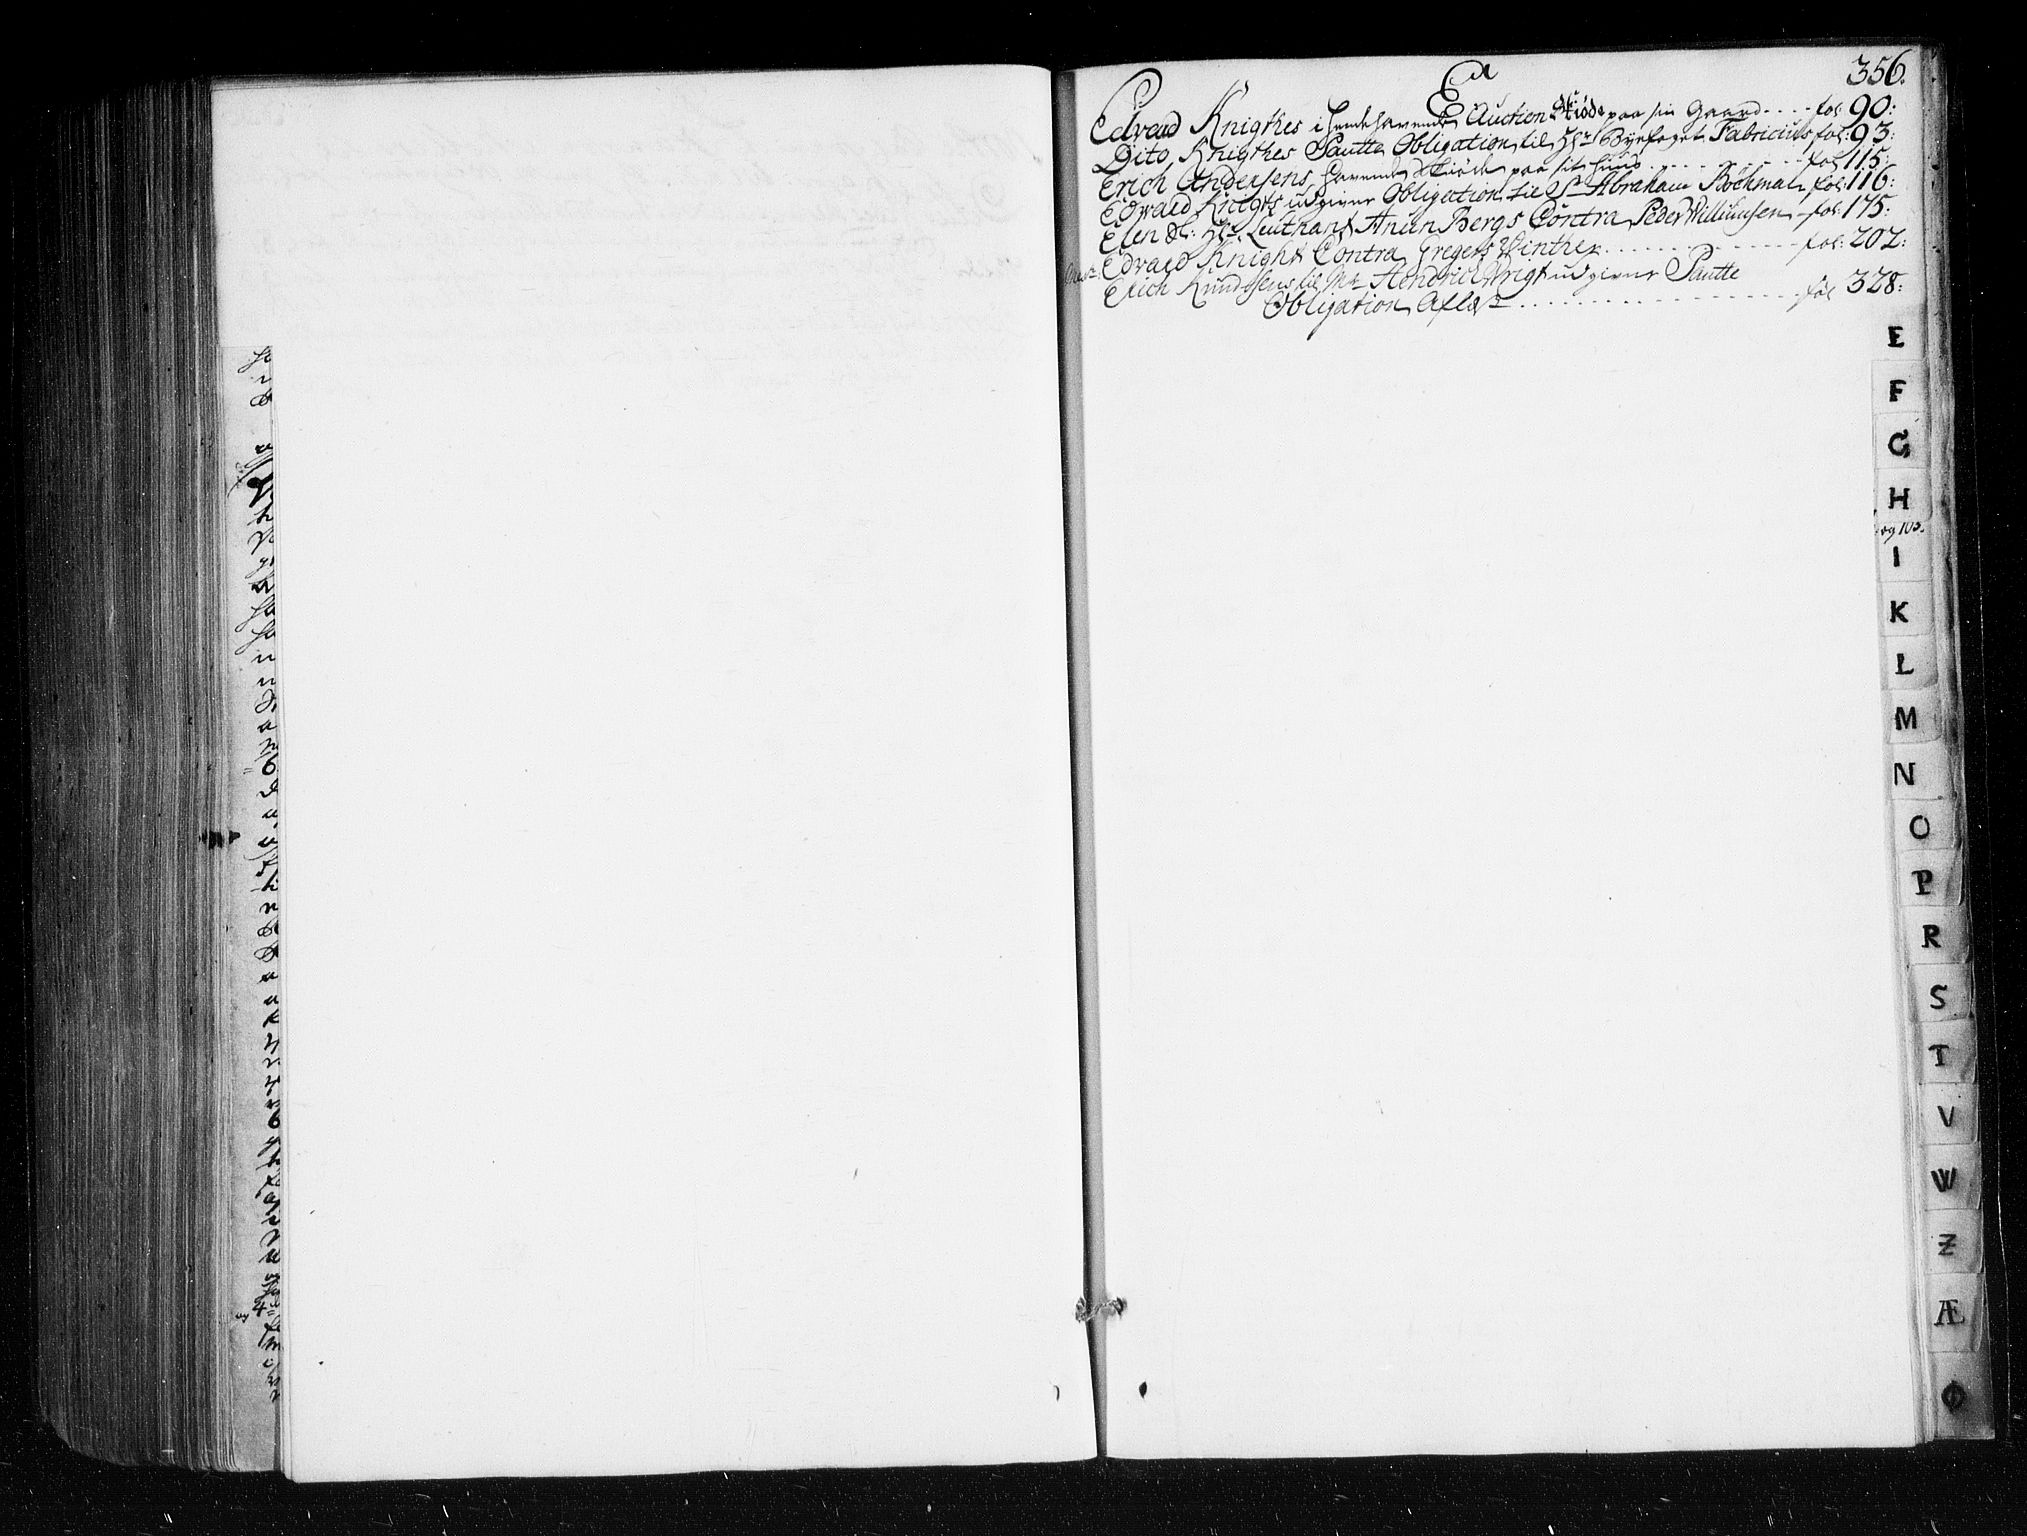 356.
E
Edvard Knigthes i hændehavende Auction Skiøde paa sin Gaard .... fol: 90:
Dito Knigthes Pantte Obligation til Hr Byefoget Fabricius fol: 93:
Erich Andersens havende Skiøde paa sit Huus ........ fol 115:
Edwald Knigts udgivne Obligation til Sr Abraham Böckman fol: 116:
Elen Sl: Hr: Leuthant Anun Bergs Contra Peder Willumsen fol: 175:
Edvard Knight Contra Gregers Winther ........ fol: 202:
Erich Knudssens til Mr Hendrich Wrigt udgivne Pantte
Obligation Aflæst ........ fol 328:
E
F
G
H
og 103.
I
K
L
M
N
O
P
R
S
T
V
W
Z
Æ
Ø